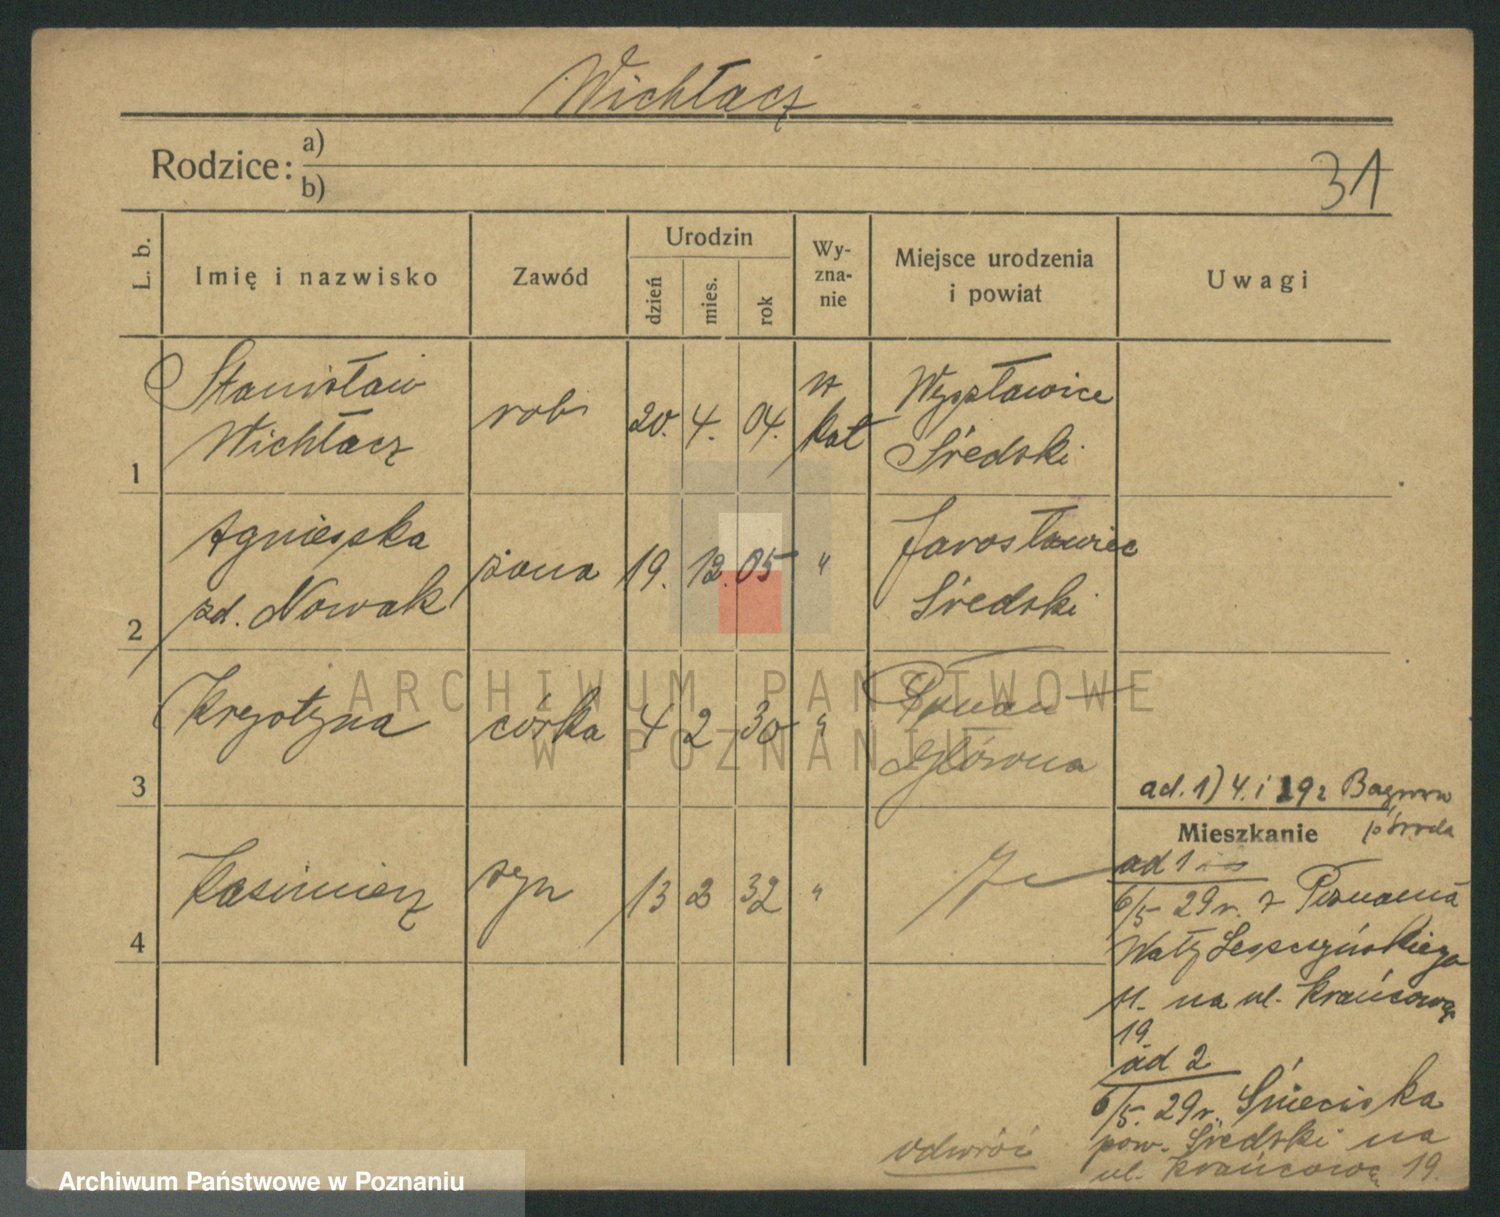 Wichłacz
Rodzice: a)
b)
31
L. b.
Imię i nazwisko
Zawód
Urodzin
dzień
mies.
rok
Wy-
zna-
nie
Miejsce urodzenia
i powiat
Uwagi
1
Stanisław
Wichłacz
rob
20. 4. 04.
kat
Wysławice
Średzki
2
Agnieszka
zd. Nowak
żona
19. 12. 05
"
Jarosławiec
Średzki
3
Krystyna
córka
4 2 30
"
Poznań
Główna
4
Kazimierz
syn
13 2 32
"
ad. 1) 4. i 29
Mieszkanie
p Środa
ad 1
6/5 29 r. z Poznania
Wały Leszczyńskiego
11. na ul. Krańcową
19
ad 2
6/5. 29 r. Śnieciska
pow. Średzki na
ul. Krańcową 19.
odwróć
ARCHIWUM PAŃSTWOWE
W POZNANIU
Archiwum Państwowe w Poznaniu